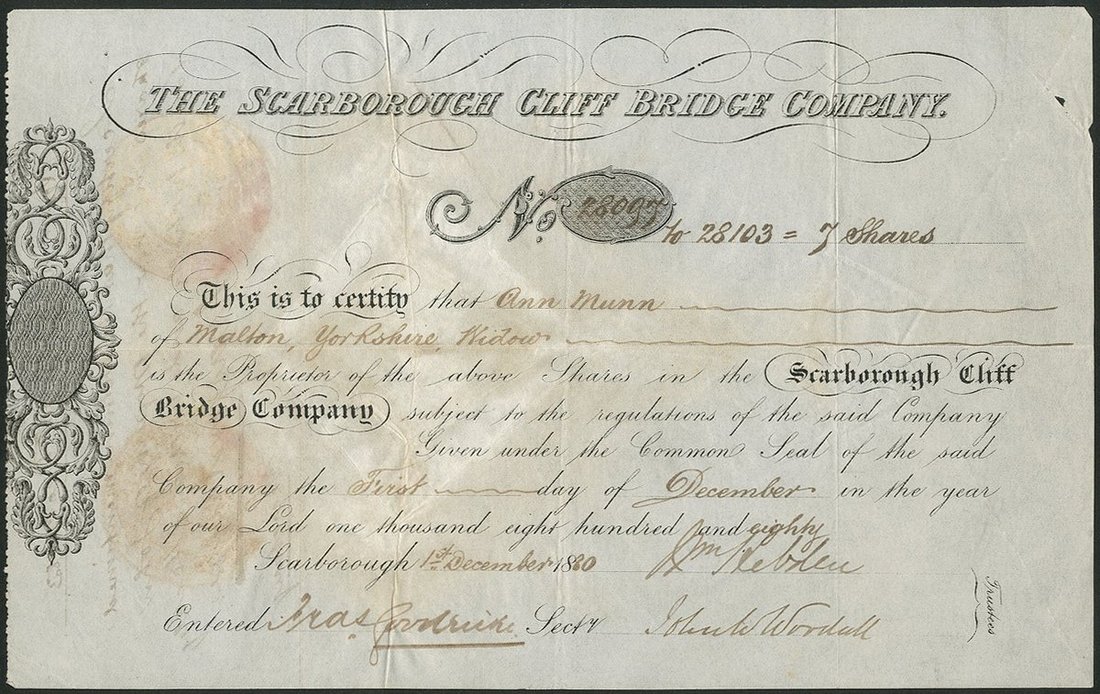 THE SCARBOROUGH CLIFF BRIDGE COMPANY.
No. 28097
to 28103 = 7 Shares
This is to certify that Ann Munn
of Malton, Yorkshire, Widow
is the Proprietor of the above Shares in the Scarborough Cliff
Bridge Company subject to the regulations of the said Company
Given under the Common Seal of the said
Company the First day of December in the year
of our Lord one thousand eight hundred and eighty
Scarborough 1st December 1880
Wm Hebden
Entered Fras Goodricke Secty
John W Woodall
Trustees